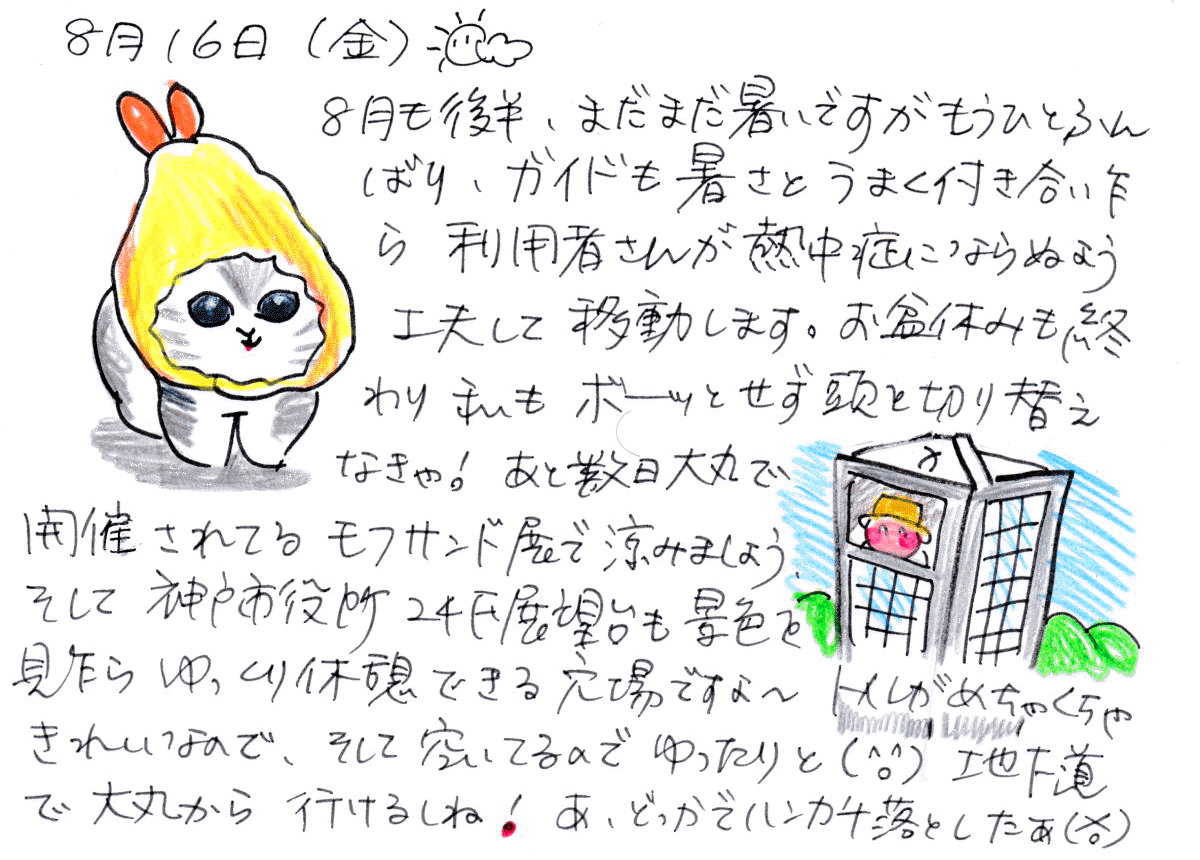 8月16日（金）
8月も後半、まだまだ暑いですがもうひとふん
ばり、ガイドも暑さとうまく付き合い乍
ら 利用者さんが熱中症にならぬよう
工夫して移動します。お盆休みも終
わり私もボーッとせず頭を切り替え
なきゃ！ あと数日大丸で
開催されてるモフサンド展で涼みましょう、
そして神戸市役所24F展望台も景色を
見乍らゆっくり休憩できる穴場ですよ～ トイレがめちゃくちゃ
きれいなので、そして空いてるのでゆったりと(^o^) 地下道
で大丸から行けるしね！ あ、どっかでハンカチ落としたぁ(×o)